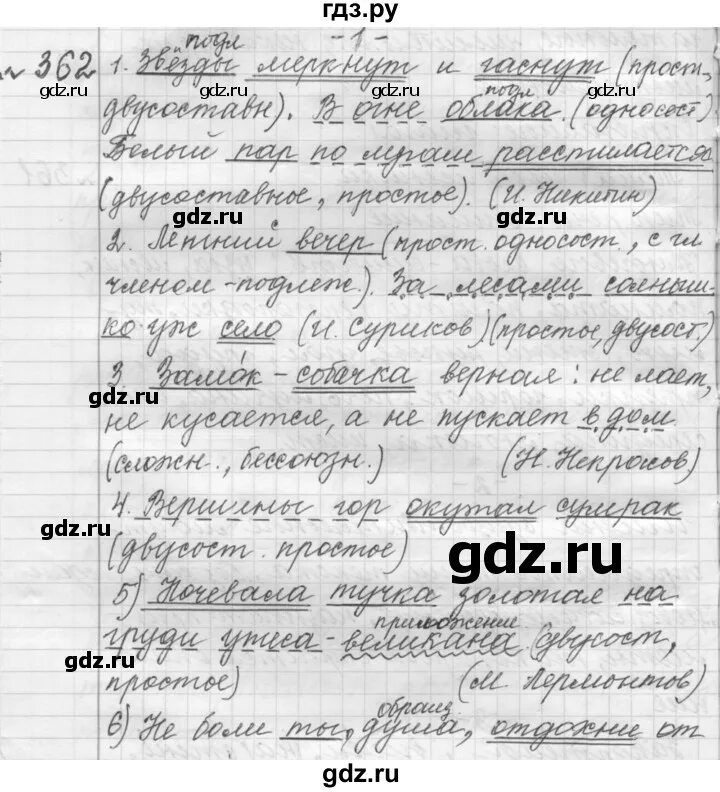 гдз.ру
подл - 1 -
№ 362 1. Звёзды меркнут и гаснут (прост,
gdz.ru gdz.ru gdz.ru
подл
двусоставн). В огне облака. (односост)
Белый пар по лугам расстилается
(двусоставное, простое). (И. Никитин)
gdz.ru gdz.ru
2. Летний вечер (прост. односост., с гл
членом - подлеж.). За лесами солныш-
ко уж село (И. Суриков) (простое, двусост.)
gdz.ru gdz.ru
3 Замок - собачка верная: не лает,
gdz.ru gdz.ru
не кусается, а не пускает в дом
(сложн., бессоюзн.) (Н. Некрасов)
4. Вершины гор окутал сумрак
gdz.ru gdz.ru
(двусост. простое)
5) Ночевала тучка золотая на
приложение
груди утёса - великана (двусост,
gdz.ru gdz.ru
простое) (М. Лермонтов)
обращ.
6) Не боли ты, душа, отдохни от
gdz.ru gdz.ru gdz.ru